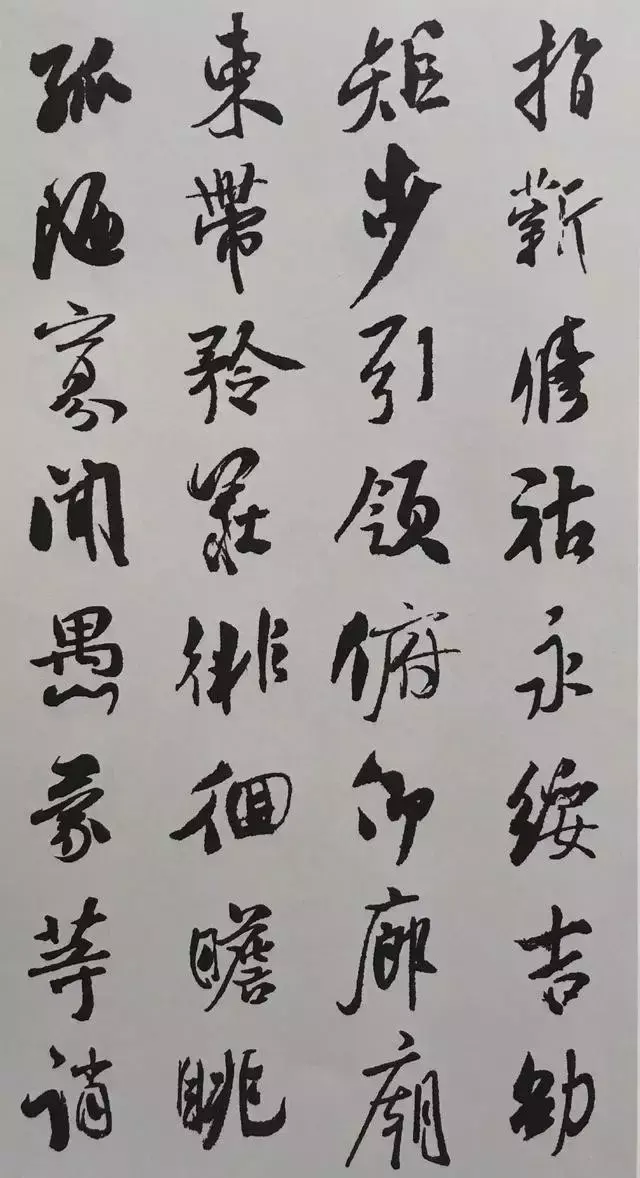 指薪修祜永綏吉劭
矩步引領俯仰廊廟
束帶矜莊徘徊瞻眺
孤陋寡聞愚蒙等誚